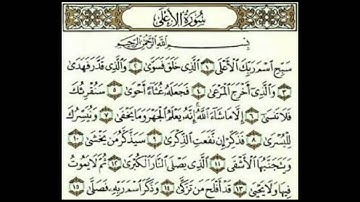 سُورَةُ الأَعْلَى
بِسْمِ اللَّهِ الرَّحْمَٰنِ الرَّحِيمِ
سَبِّحِ اسْمَ رَبِّكَ الْأَعْلَى ١ الَّذِي خَلَقَ فَسَوَّىٰ ٢ وَالَّذِي قَدَّرَ فَهَدَىٰ
٣ وَالَّذِي أَخْرَجَ الْمَرْعَىٰ ٤ فَجَعَلَهُ غُثَاءً أَحْوَىٰ ٥ سَنُقْرِئُكَ
فَلَا تَنسَىٰ ٦ إِلَّا مَا شَاءَ اللَّهُ إِنَّهُ يَعْلَمُ الْجَهْرَ وَمَا يَخْفَىٰ ٧ وَنُيَسِّرُكَ
لِلْيُسْرَىٰ ٨ فَذَكِّرْ إِن نَّفَعَتِ الذِّكْرَىٰ ٩ سَيَذَّكَّرُ مَن يَخْشَىٰ ١٠
وَيَتَجَنَّبُهَا الْأَشْقَى ١١ الَّذِي يَصْلَى النَّارَ الْكُبْرَىٰ ١٢ ثُمَّ لَا يَمُوتُ
فِيهَا وَلَا يَحْيَىٰ ١٣ قَدْ أَفْلَحَ مَن تَزَكَّىٰ ١٤ وَذَكَرَ اسْمَ رَبِّهِ فَصَلَّىٰ ١٥